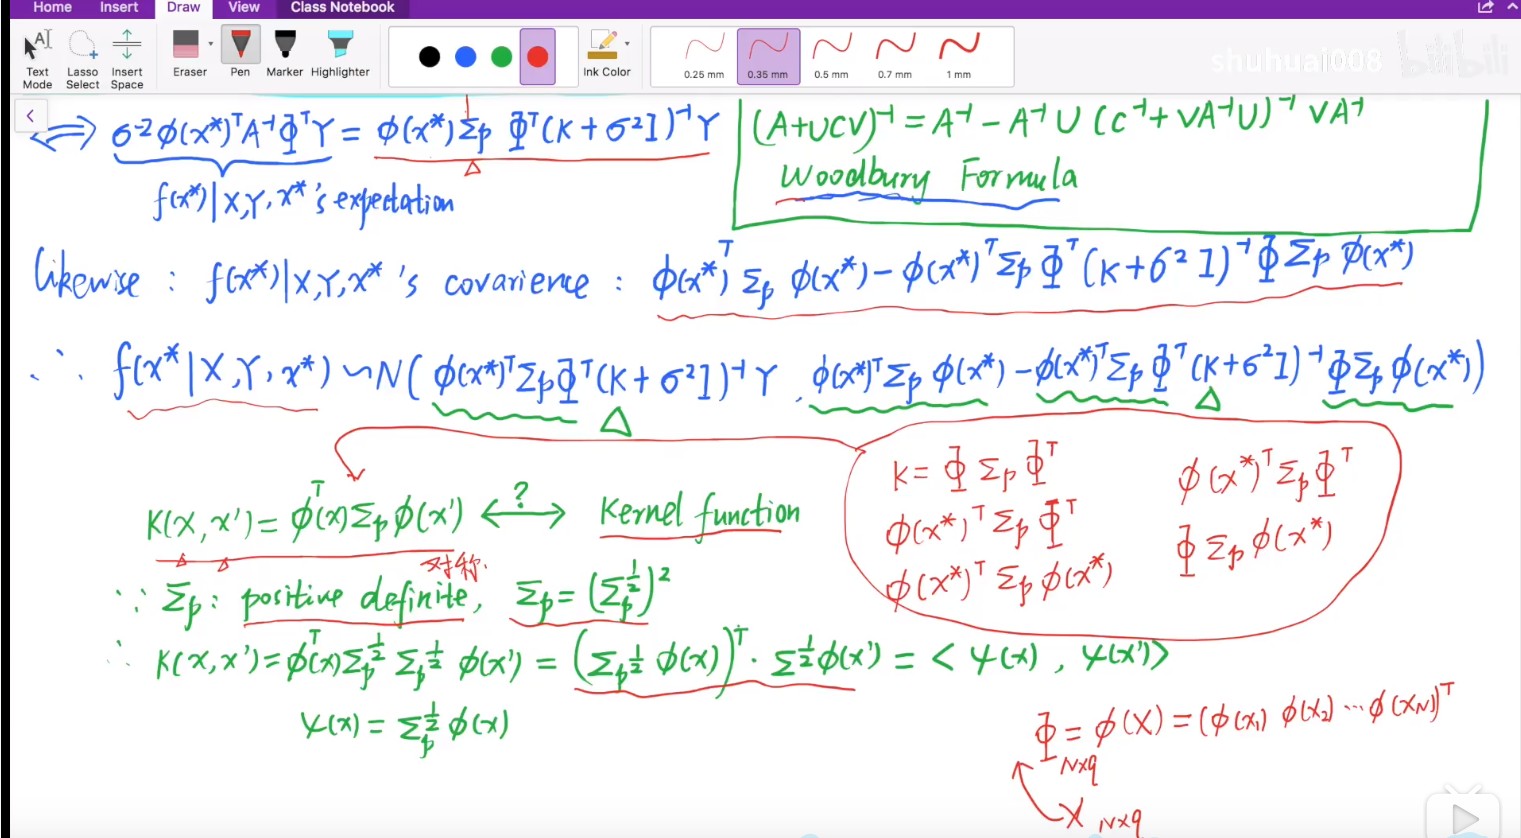 Home Insert Draw View Class Notebook
Text Mode Lasso Select Insert Space Eraser Pen Marker Highlighter Ink Color 0.25 mm 0.35 mm 0.5 mm 0.7 mm 1 mm
shuhuai008 bilibili
⟺ σ⁻²φ(x*)ᵀA⁻¹ΦᵀY = φ(x*)Σp Φᵀ(K+σ²I)⁻¹Y
(A+UCV)⁻¹ = A⁻¹ - A⁻¹U(C⁻¹+VA⁻¹U)⁻¹VA⁻¹
Woodbury Formula
f(x*)|X,Y,x*'s expectation
Likewise : f(x*)|X,Y,x*'s covarience : φ(x*)ᵀΣpφ(x*) - φ(x*)ᵀΣpΦᵀ(K+σ²I)⁻¹ΦΣpφ(x*)
∴ f(x*|X,Y,x*) ∽N(φ(x*)ᵀΣpΦᵀ(K+σ²I)⁻¹Y, φ(x*)ᵀΣpφ(x*) - φ(x*)ᵀΣpΦᵀ(K+σ²I)⁻¹ΦΣpφ(x*))
K = ΦΣpΦᵀ φ(x*)ᵀΣpΦᵀ
φ(x*)ᵀΣpΦᵀ ΦΣpφ(x*)
φ(x*)ᵀΣpφ(x*)
K(x,x') = φᵀ(x)Σpφ(x') ⟷? Kernel function
对称.
∵ Σp: positive definite, Σp = (Σp^½)²
∴ K(x,x') = φᵀ(x)Σp^½ Σp^½ φ(x') = (Σp^½ φ(x))ᵀ · Σ^½φ(x') = <ψ(x), ψ(x')>
ψ(x) = Σp^½ φ(x)
Φ = φ(X) = (φ(x₁) φ(x₂) ··· φ(x_N))ᵀ
N×q
X N×q